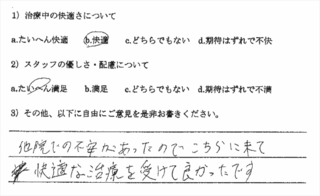 1）治療中の快適さについて
a.たいへん快適　b.快適　c.どちらでもない　d.期待はずれで不快
2）スタッフの優しさ・配慮について
a.たいへん満足　b.満足　c.どちらでもない　d.期待はずれで不満
3）その他、以下に自由にご意見を是非お書きください。
他院での不安があったので こちらに来て
快適な治療を受けて良かったです